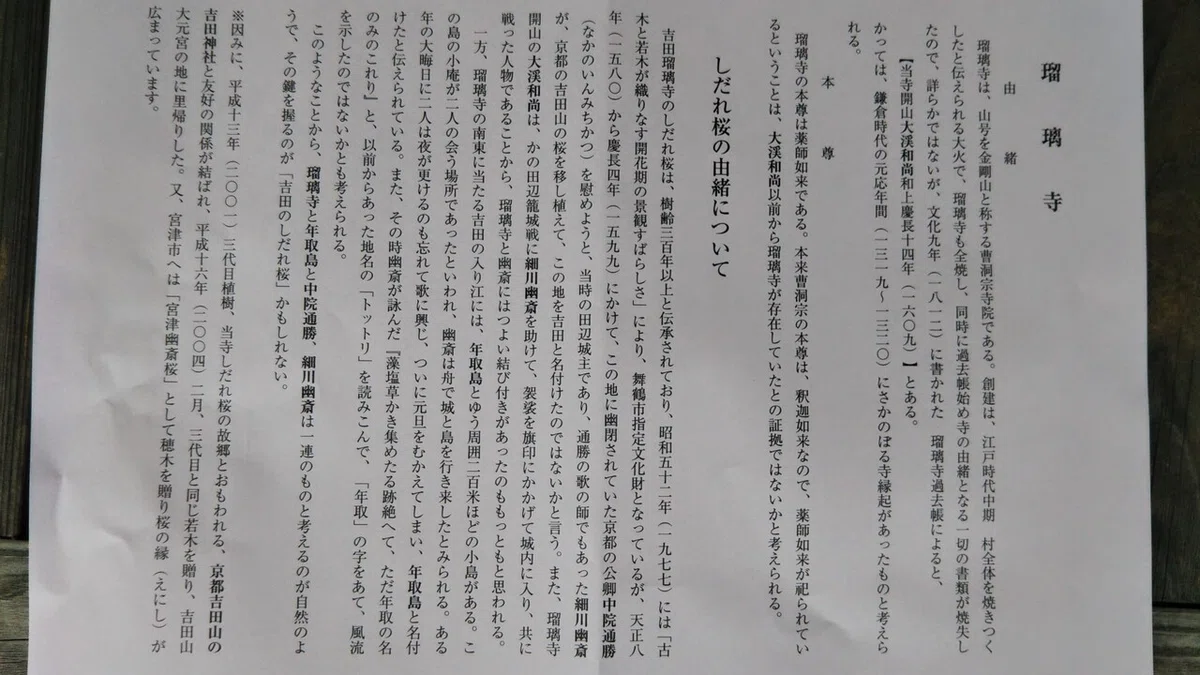 瑠璃寺
由緒
瑠璃寺は、山号を金剛山と称する曹洞宗寺院である。創建は、江戸時代中期　村全体を焼きつく
したと伝えられる大火で、瑠璃寺も全焼し、同時に過去帳始め寺の由緒となる一切の書類が焼失し
たので、詳らかではないが、文化九年（一八一二）に書かれた　瑠璃寺過去帳によると、
【当寺開山大渓和尚和上慶長十四年（一六〇九）】とある。
かっては、鎌倉時代の元応年間（一三一九～一三二〇）にさかのぼる寺縁起があったものと考えら
れる。
本尊
瑠璃寺の本尊は薬師如来である。本来曹洞宗の本尊は、釈迦如来なので、薬師如来が祀られてい
るということは、大渓和尚以前から瑠璃寺が存在していたとの証拠ではないかと考えられる。
しだれ桜の由緒について
吉田瑠璃寺のしだれ桜は、樹齢三百年以上と伝承されており、昭和五十二年（一九七七）には「古
木と若木が織りなす開花期の景観すばらしさ」により、舞鶴市指定文化財となっているが、天正八
年（一五八〇）から慶長四年（一五九九）にかけて、この地に幽閉されていた京都の公卿中院通勝
（なかのいんみちかつ）を慰めようと、当時の田辺城主であり、通勝の歌の師でもあった細川幽斎
が、京都の吉田山の桜を移し植えて、この地を吉田と名付けたのではないかと言う。また、瑠璃寺
開山の大渓和尚は、かの田辺籠城戦に細川幽斎を助けて、袈裟を旗印にかかげて城内に入り、共に
戦った人物であることから、瑠璃寺と幽斎にはつよい結び付きがあったのももっともと思われる。
一方、瑠璃寺の南東に当たる吉田の入り江には、年取島とゆう周囲二百米ほどの小島がある。こ
の島の小庵が二人の会う場所であったといわれ、幽斎は舟で城と島を行き来したとみられる。ある
年の大晦日に二人は夜が更けるのも忘れて歌に興じ、ついに元旦をむかえてしまい、年取島と名付
けたと伝えられている。また、その時幽斎が詠んだ『藻塩草かき集めたる跡絶へて、ただ年取の名
のみのこれり』と、以前からあった地名の「トットリ」を読みこんで、「年取」の字をあて、風流
を示したのではないかとも考えられる。
このようなことから、瑠璃寺と年取島と中院通勝、細川幽斎は一連のものと考えるのが自然のよ
うで、その鍵を握るのが「吉田のしだれ桜」かもしれない。
※因みに、平成十三年（二〇〇一）三代目植樹、当寺しだれ桜の故郷とおもわれる、京都吉田山の
吉田神社と友好の関係が結ばれ、平成十六年（二〇〇四）二月、三代目と同じ若木を贈り、吉田山
大元宮の地に里帰りした。又、宮津市へは「宮津幽斎桜」として穂木を贈り桜の縁（えにし）が
広まっています。